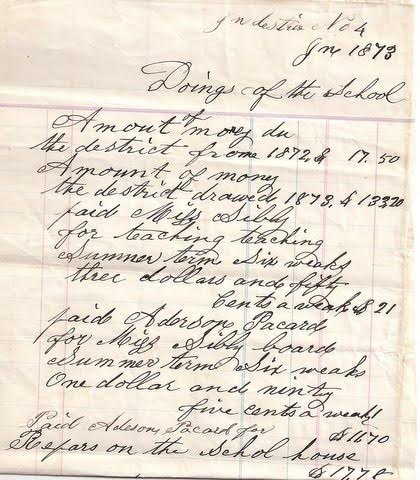 In destric No 4
In 1873
Doings of the School
Amout of mony du
the district from 1872, $ 17.50
Amount of money
the destrict drawed 1873, $ 133,20
paid Miss Sibly
for teaching teaching
Summer term Six weaks
three dollars and fifty
Cents a weak $ 21
paid Aderson Pacard
for Miss Sibly board
Summer term Six weaks
One dollar and ninty
five cents a weak
$ 11.70
Paid Adeson Pacard for
Repars on the Schol house
$ 17.78